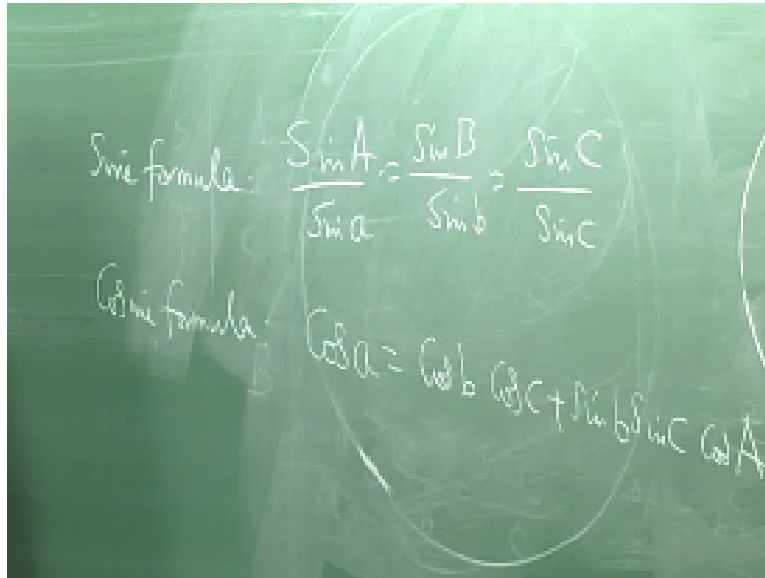 Sine formula: SinA/Sina = SinB/Sinb = SinC/Sinc
Cosine formula: Cosa = Cosb Cosc + Sinb Sinc CosA